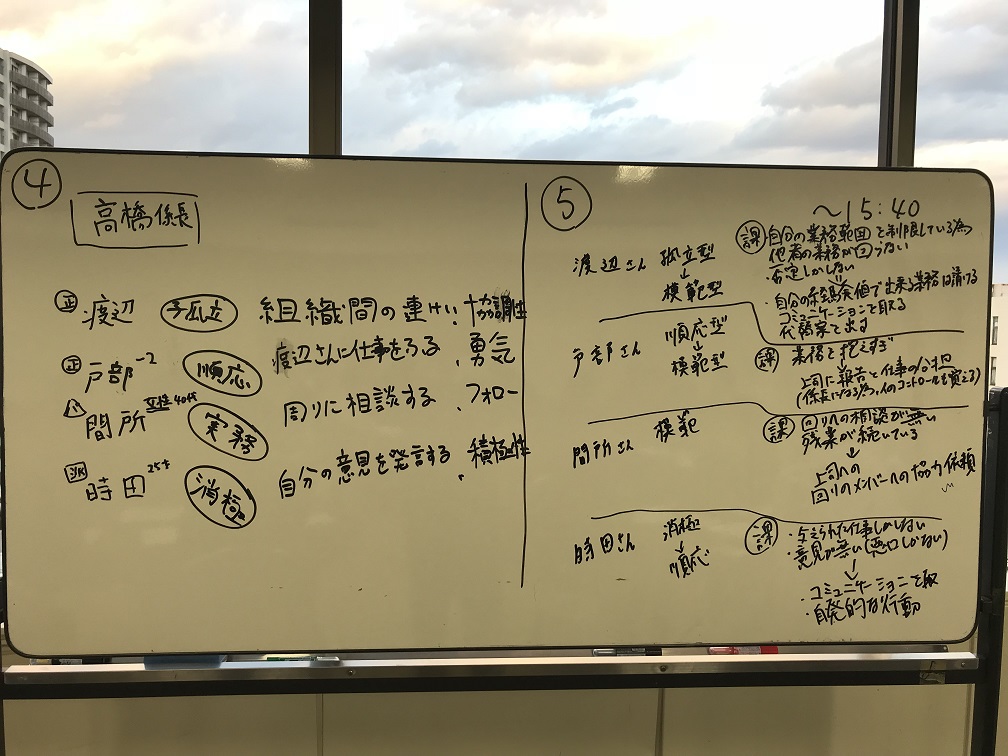 ④
高橋係長
正 渡辺 孤立 組織間の連けい 協調性
正 戸部-2 順応 渡辺さんに仕事をふる 、勇気
間所 女性40代 実務 周りに相談する 、フォロー
派 時田 25才 消極 自分の意見を発言する 、積極性
⑤
～15:40
渡辺さん 孤立型
↓
模範型
課 自分の業務範囲を制限している為
他者の業務が回らない
・否定しかしない
↓
・自分の経験値で出来る業務は請ける
コミュニケーションを取る
代替案を出す
戸部さん 順応型
↓
模範型
課 業務を抱えすぎ
↓
上司に報告と仕事の分担
(係長になる為、人のコントロールを覚える)
間所さん 模範
課 回りへの相談が無い
残業が続いている
↓
上司への
回りのメンバーへの協力依頼
時田さん 消極
↓
順応
課 ・与えられた仕事しかしない
・意見が無い(悪口しかない)
↓
・コミュニケーションを取
・自発的な行動